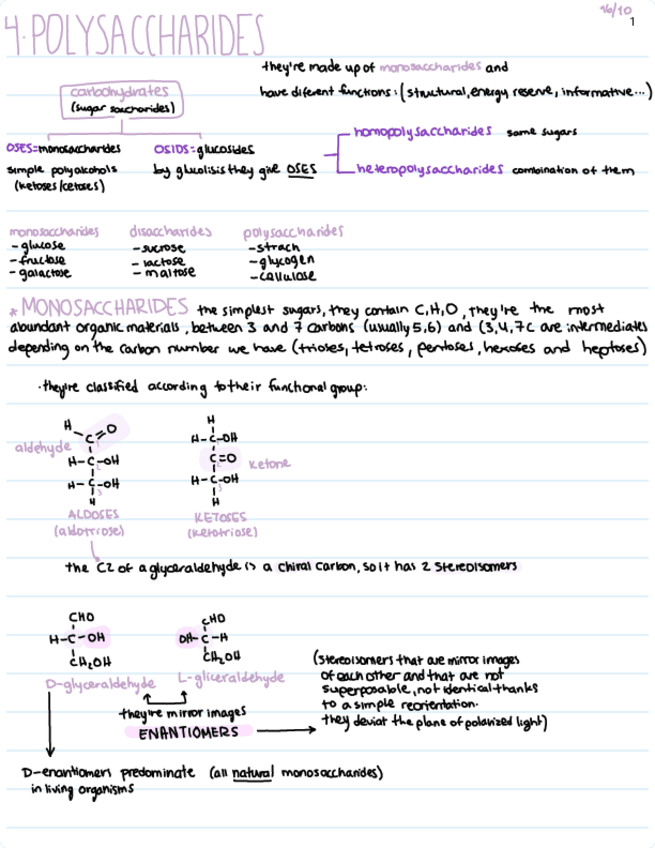 16/10
1
4. POLYSACCHARIDES
they're made up of monosaccharides and
have diferent functions: (structural, energy reserve, informative...)
carbohydrates
(sugar saccharides)
OSES=monosaccharides
simple polyalcohols
(ketoses/cetoses)
OSIDS=glucosides
by glucolisis they give OSES
homopolysaccharides same sugars
heteropolysaccharides combination of them
monosaccharides
-glucose
-fructose
-galactose
disaccharides
-sucrose
-lactose
-maltose
polysaccharides
-strach
-glycogen
-cellulose
*MONOSACCHARIDES the simplest sugars, they contain C,H,O, they're the most
abundant organic materials, between 3 and 7 carbons (usually 5,6) and (3,4,7c are intermediates
depending on the carbon number we have (trioses, tetroses, pentoses, hexoses and heptoses)
·they're classified according to their functional group:
aldehyde
H
C=O
H-C-OH
H-C-OH
H
ALDOSES
(aldotriose)
H
H-C-OH
C=O
ketone
H-C-OH
H
KETOSES
(ketotriose)
the C2 of a glyceraldehyde is a chiral carbon, so it has 2 stereoisomers
CHO
H-C-OH
CH2OH
D-glyceraldehyde
CHO
OH-C-H
CH2OH
L-gliceraldehyde
they're mirror images
ENANTIOMERS
(stereoisomers that are mirror images
of each other and that are not
superposable, not identical thanks
to a simple reorientation.
they deviat the plane of polarized light)
D-enantiomers predominate (all natural monosaccharides)
in living organisms